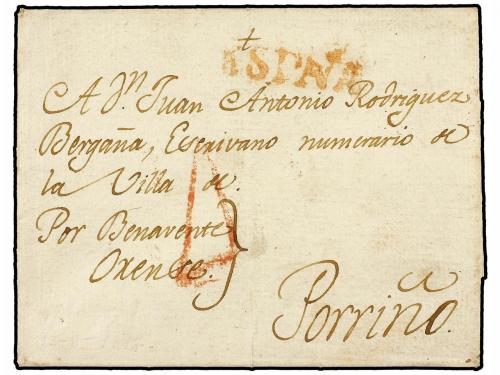 ASPÑA
A Dn. Juan Antonio Rodriguez
Bergaña, Escrivano numerario de
la Villa de.
Por Benavente
Orense.
Porriño.